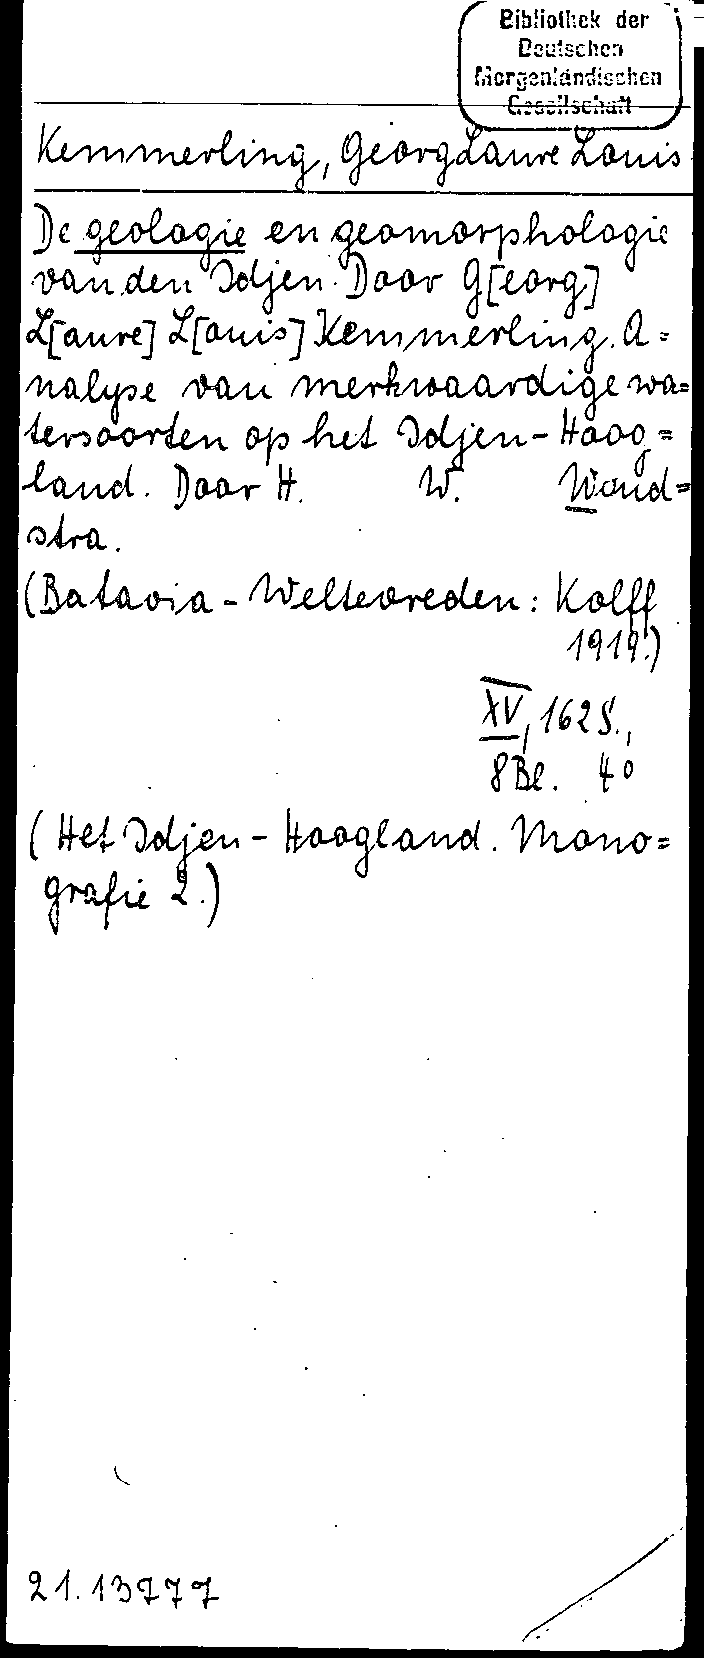 Bibliothek der
Deutschen
Morgenländischen
Gesellschaft
Kemmerling, Georg Laure Louis
De geologie en geomorphologie
van den Idjen. Door G[eorg]
L[aure] L[ouis] Kemmerling. A=
nalyse van merkwaardige wa=
tersoorten op het Idjen-Hoog=
land. Door H. W. Woud=
stra.
(Batavia-Weltevreden: Kolff
1919.)
XV, 162 S.,
8 Bl. 4°
(Het Idjen-Hoogland. Mono=
grafie 2.)
21.13777